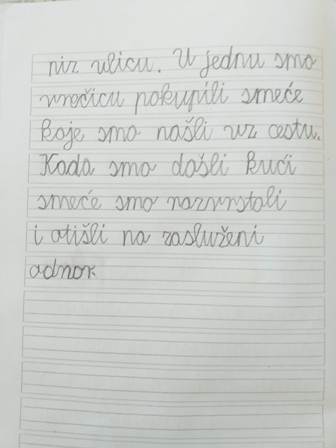 niz ulicu. U jednu smo
vrečicu pokupili smeće
koje smo našli uz cestu.
Kada smo došli kući
smeće smo razvrstali
i otišli na zasluženi
odmor